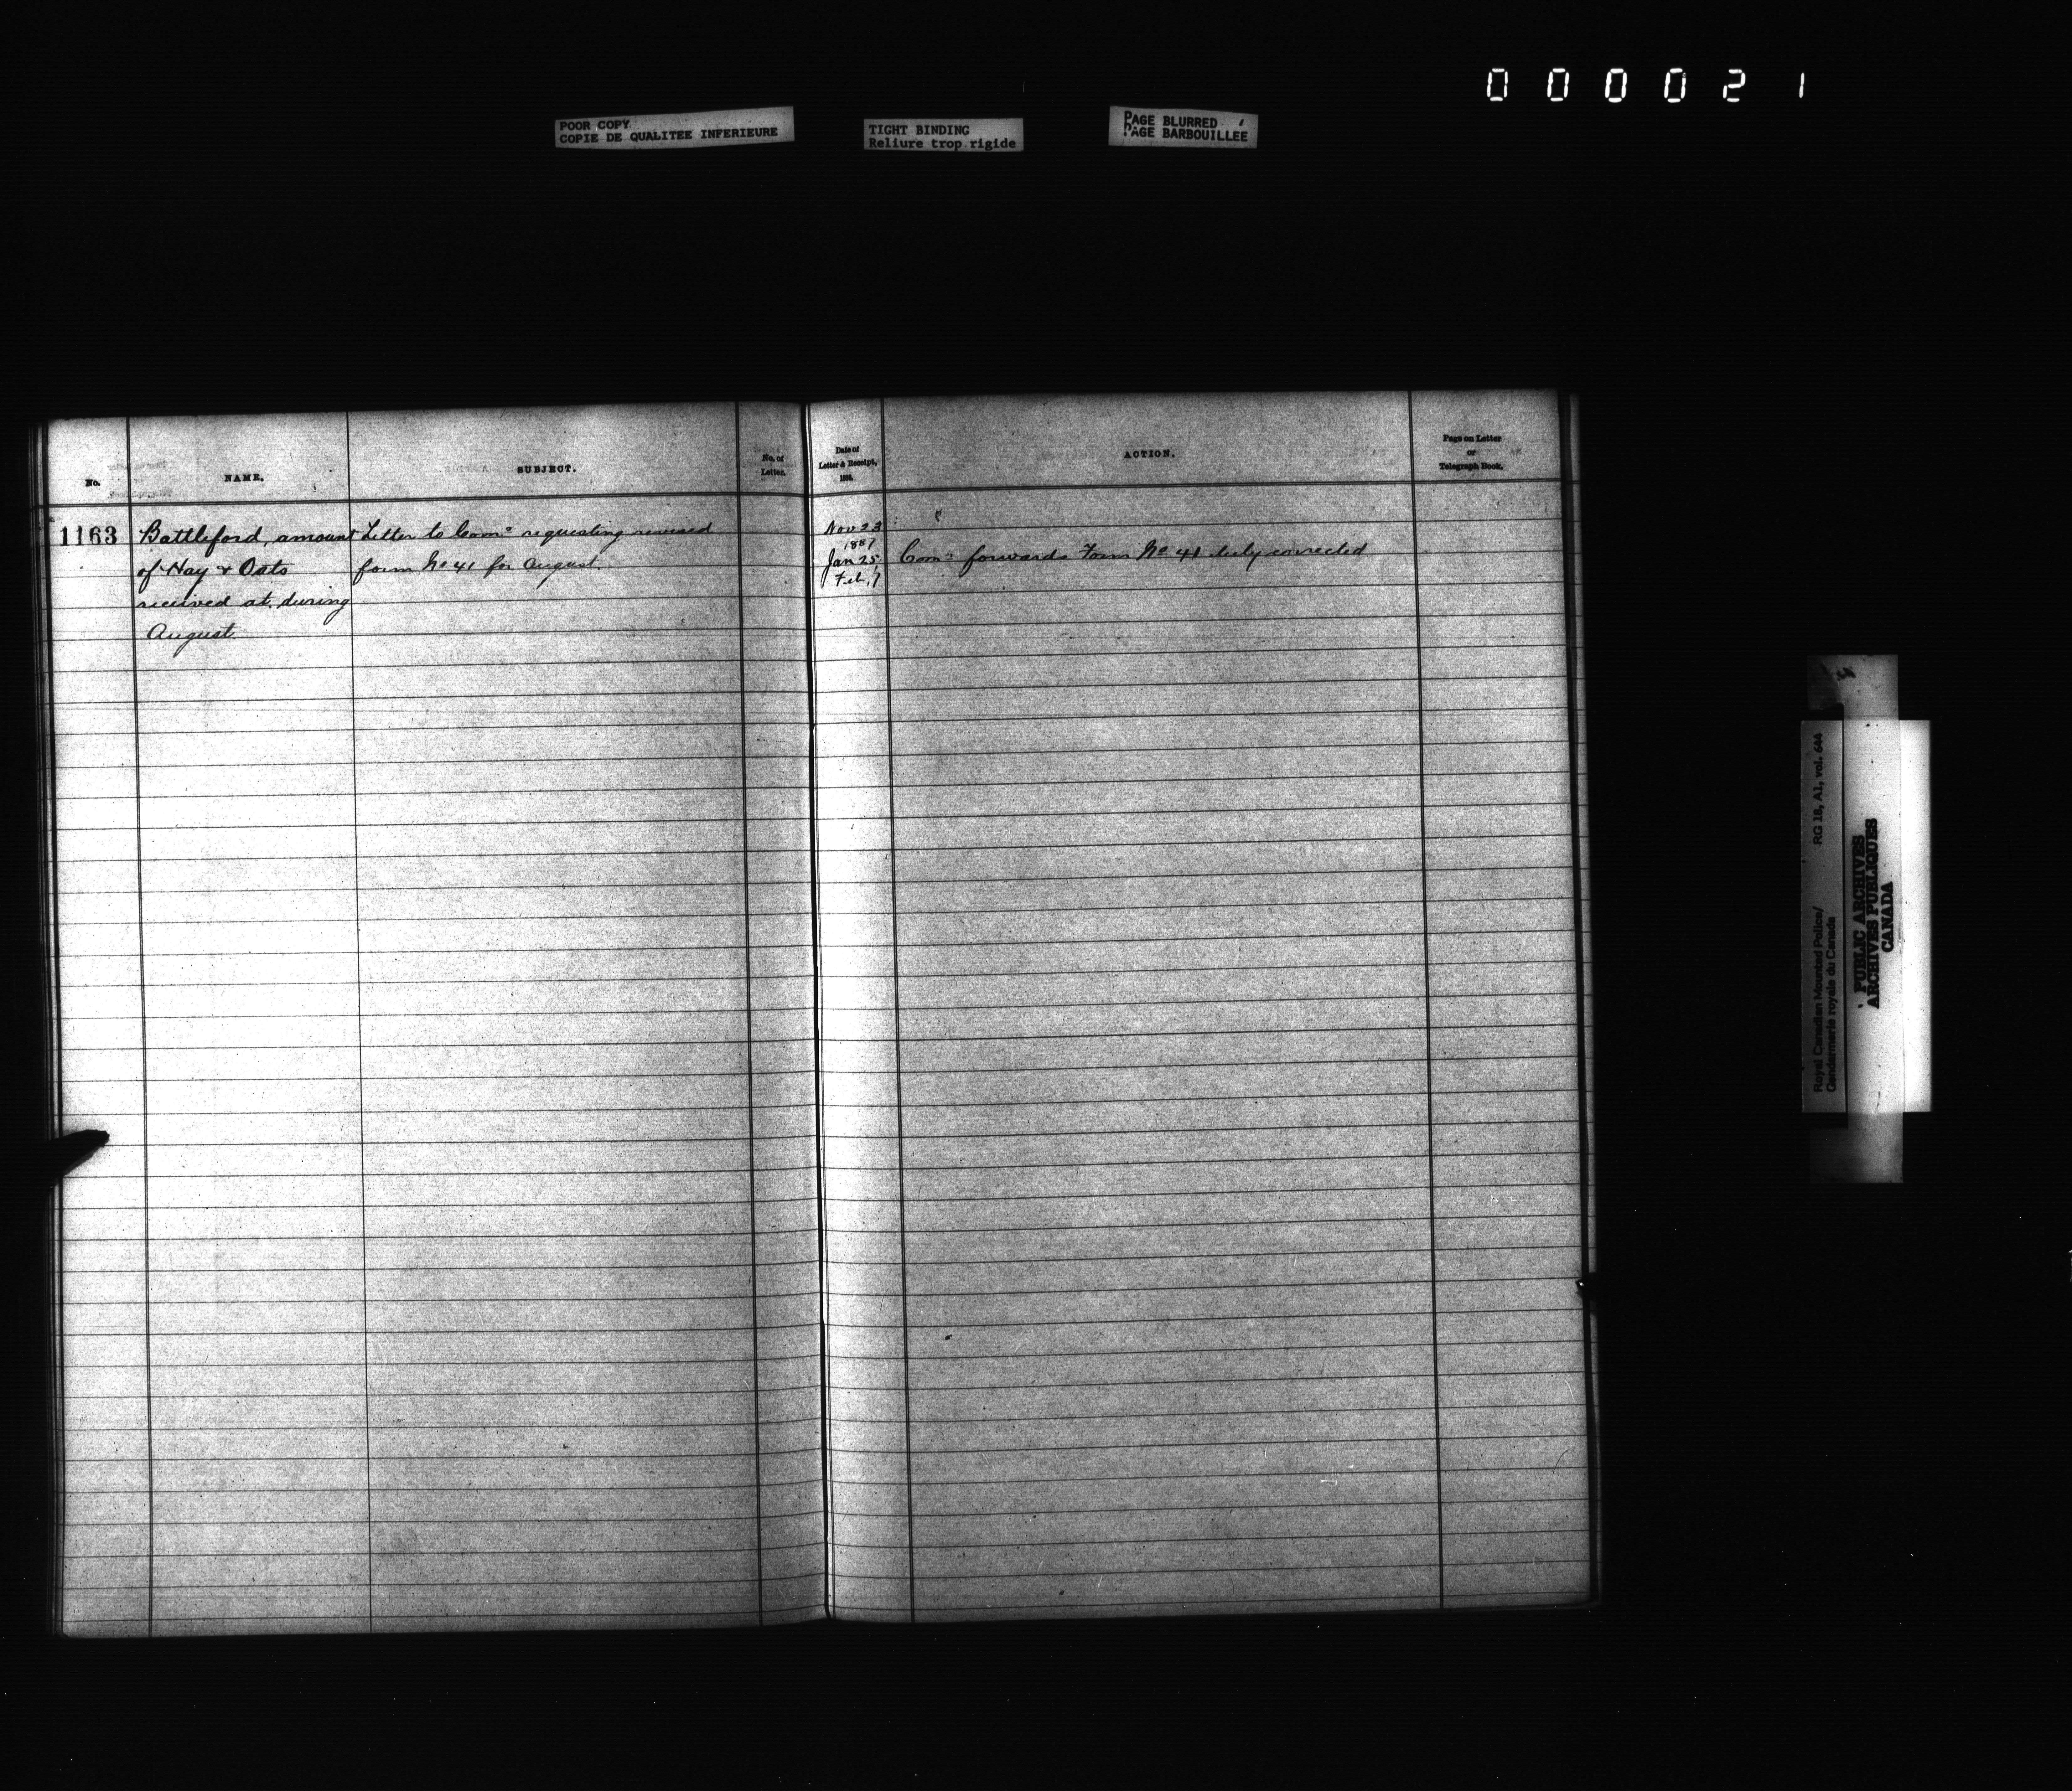 000021
POOR COPY
COPIE DE QUALITEE INFERIEURE
TIGHT BINDING
Reliure trop rigide
PAGE BLURRED
PAGE BARBOUILLEE
No.
NAME.
SUBJECT.
No. of
Letter.
Date of
Letter & Receipt,
188
ACTION.
Page on Letter
or
Telegraph Book.
1163
Battleford, amount
of Hay & Oats
received at, during
August
Letter to Comr requesting revised
form No 41 for August.
Nov 23
1887
Jan 25
Feb, 1
Comr forwards Form No 41 duly corrected
Royal Canadian Mounted Police/
Gendarmerie royale du Canada
RG 18, A1, vol. 644
PUBLIC ARCHIVES
ARCHIVES PUBLIQUES
CANADA